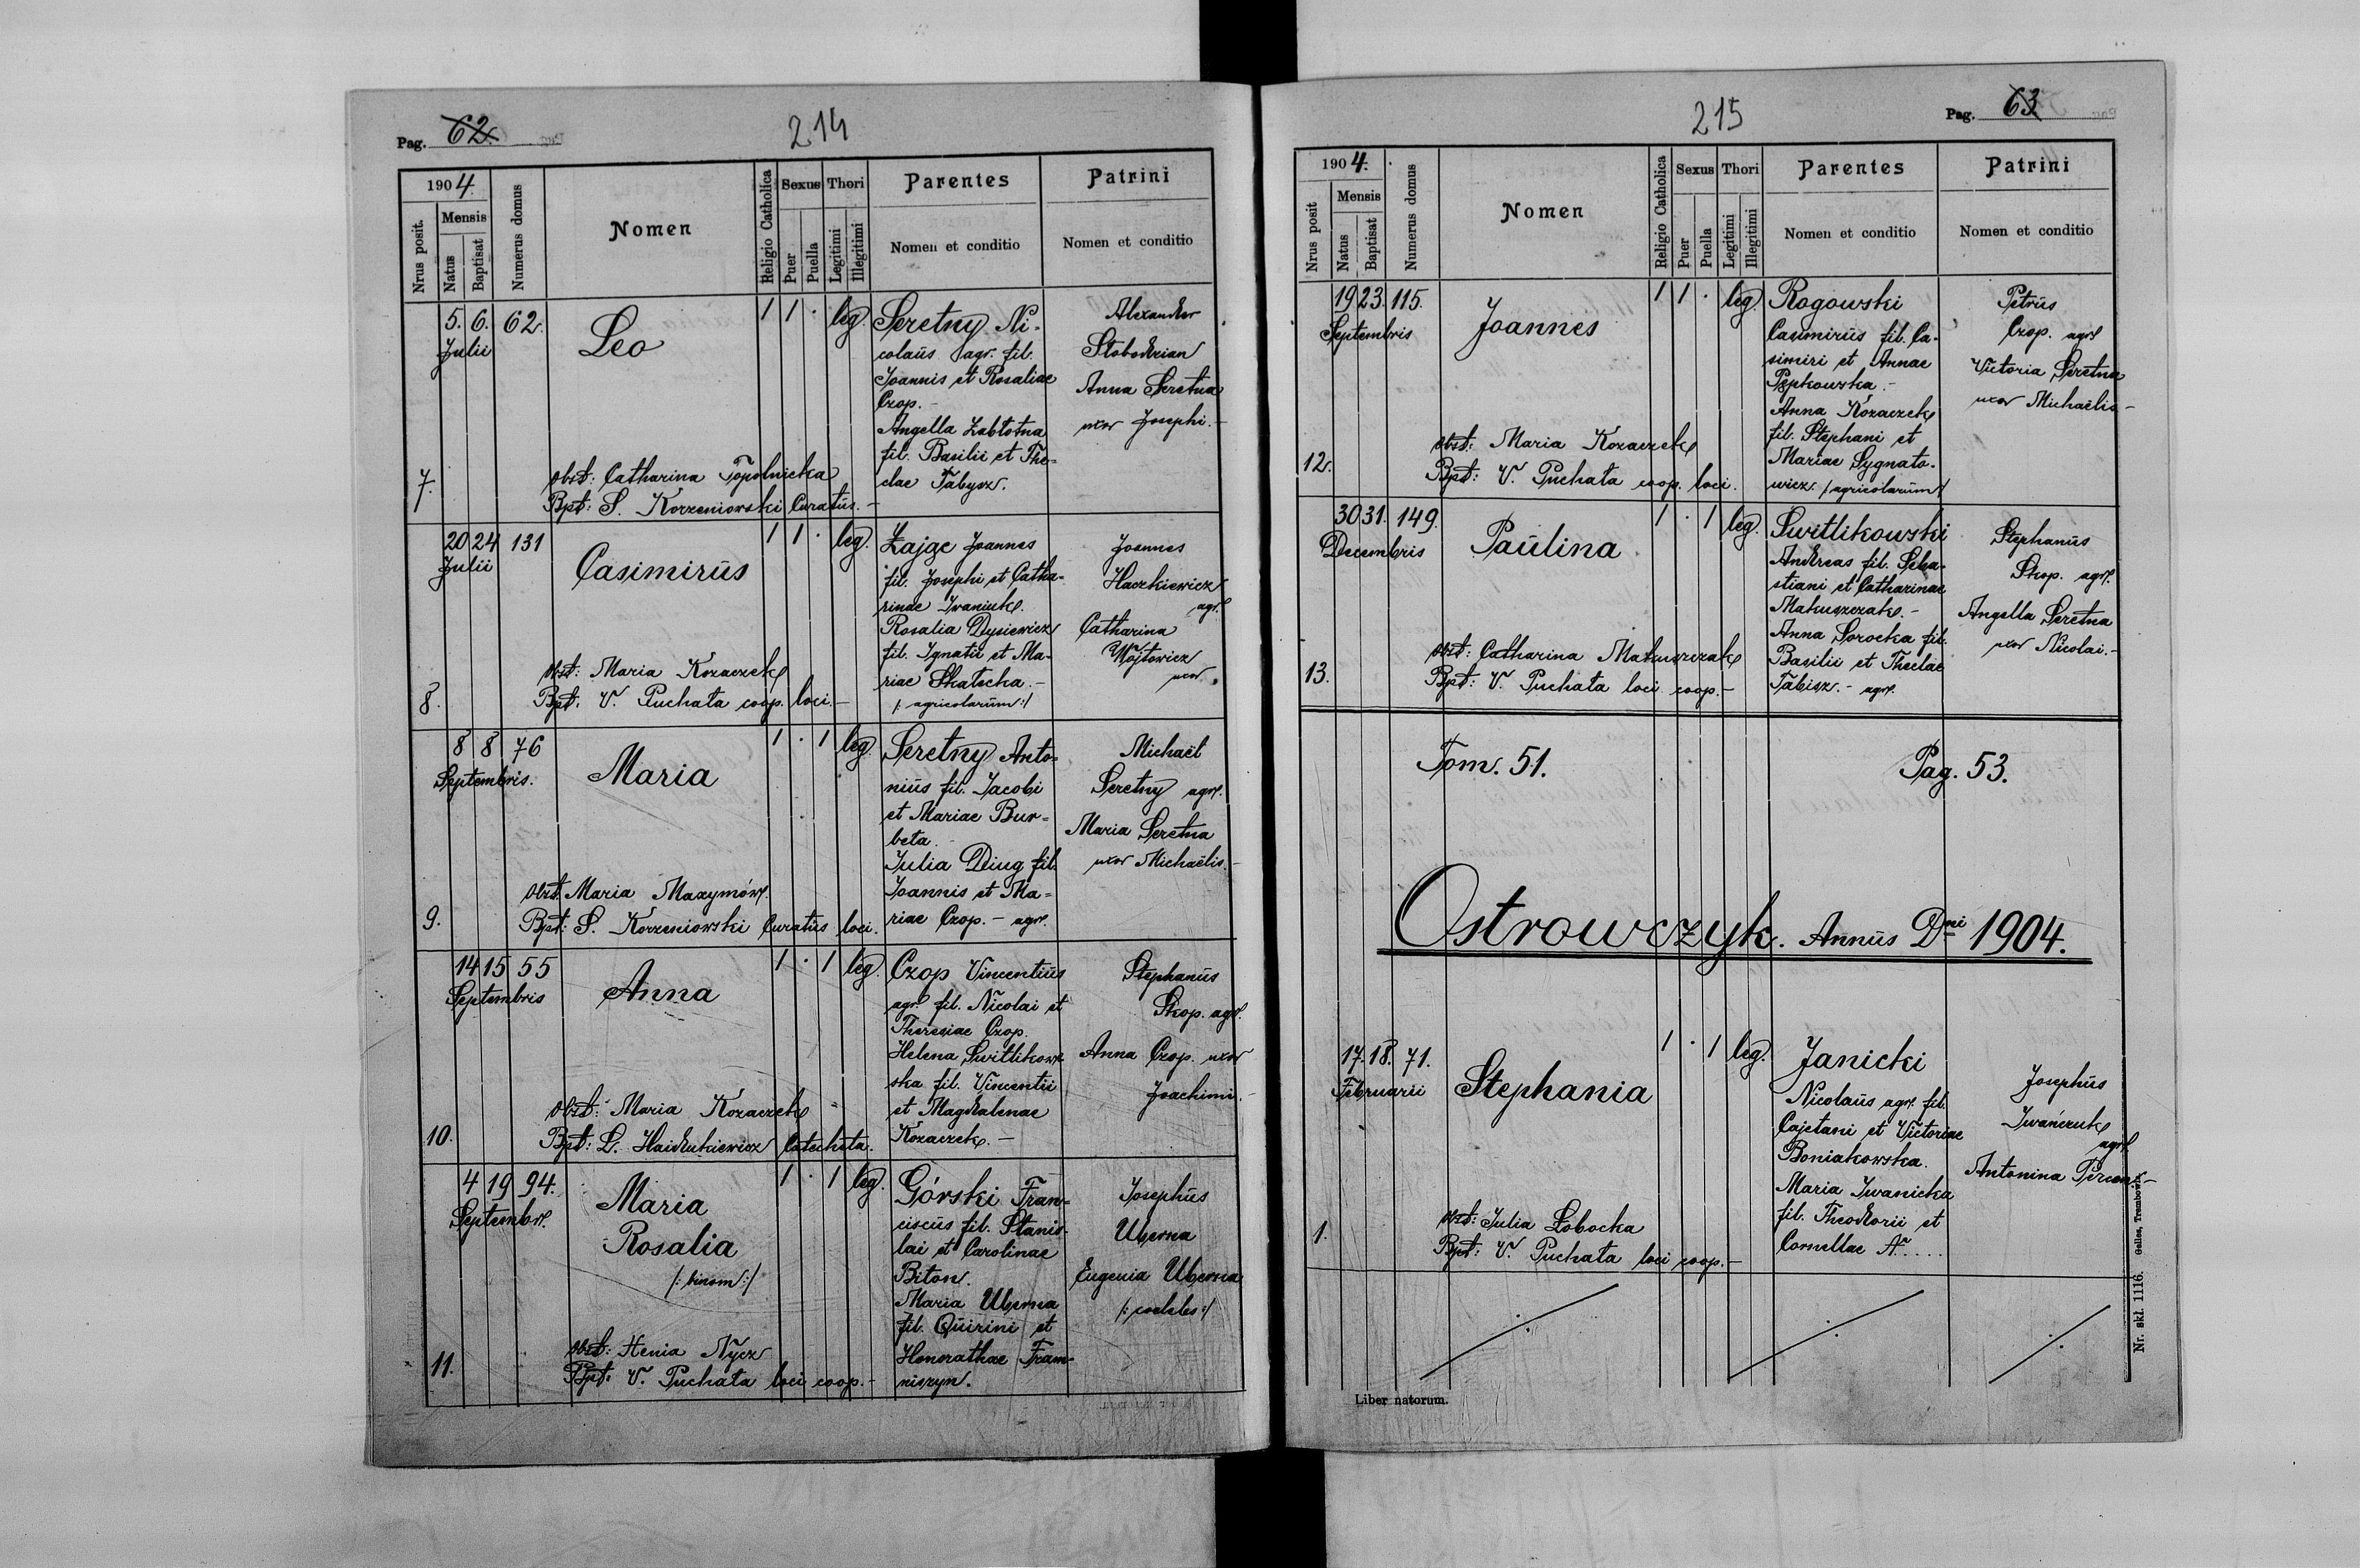 Pag. 62.
214
1904.
Nrus posit.
Mensis
Natus
Baptisat
Numerus domus
Nomen
Religio Catholica
Sexus
Puer
Puella
Thori
Legitimi
Illegitimi
Parentes
Nomen et conditio
Patrini
Nomen et conditio
7.
5. 6. 62.
Julii
Leo
1 1 . leg.
Seretny Ni-
colaus agr. fil.
Joannis et Rosaliae
Czop.
Angella Zabłotna
fil. Basilii et The-
clae Tabysz.
Alexander
Słobodzian
Anna Seretna
uxor Josephi.-
obst: Catharina Topolnicka
Bpt: S. Korzeniowski Curatus.-
8.
20 24 131
Julii
Casimirus
1 1 . leg.
Zając Joannes
fil. Josephi et Catha-
rinae Iwaniuk.
Rosalia Dysiewicz
fil. Ignatii et Ma-
riae Skałocka.-
/: agricolarum :/
Joannes
Haczkiewicz
agr.
Catharina
Wójtowicz
uxor.
obst: Maria Kozaczek
Bpt. V. Puchata coop. loci.-
9.
8 8 76
Septembris.
Maria
1 . 1 leg.
Seretny Anto-
nius fil. Jacobi
et Mariae Bur-
beta.
Julia Diug fil.
Joannis et Ma-
riae Czop. - agr.
Michael
Seretny agr.
Maria Seretna
uxor Michaëlis.-
obst. Maria Maxymów.
Bpt: S. Korzeniowski Curatus loci.
10.
14 15 55
Septembris
Anna
1 . 1 leg.
Czop Vincentius
agr. fil. Nicolai et
Theresiae Czop.
Helena Switlikow-
ska fil. Vincentii
et Magdalenae
Kozaczek. -
Stephanus
Skop. agr.
Anna Czop. uxor
Joachimi.-
obst: Maria Kozaczek
Bpt: L. Haidukiewicz Catecheta.
11.
4 19 94.
Septembr.
Maria
Rosalia
/: binom :/
1 . 1 leg.
Górski Fran-
ciscus fil. Stanis-
lai et Carolinae
Biton.
Maria Uherna
fil. Quirini et
Honorathae Fran-
niszyn.
Josephus
Uherna
Eugenia Uherna
/: coelebs :/
obst: Henia Nycz
Bpt: V. Puchata loci coop.-
215
Pag. 63
1904.
Nrus posit
Mensis
Natus
Baptisat
Numerus domus
Nomen
Religio Catholica
Sexus
Puer
Puella
Thori
Legitimi
Illegitimi
Parentes
Nomen et conditio
Patrini
Nomen et conditio
12.
19 23. 115.
Septembris
Joannes
1 1 . leg.
Rogowski
Casimirus fil. Ca-
simiri et Annae
Pępkowska.-
Anna Kozaczek
fil. Stephani et
Mariae Sygnato-
wicz. /agricolarum/
Petrus
Czop. agr.
Victoria Seretna
uxor Michaëlis.-
obst: Maria Kozaczek
Bpt: V. Puchata coop. loci.
13.
30 31. 149.
Decembris
Paulina
1 . 1 leg.
Switlikowski
Andreas fil. Seba-
stiani et Catharinae
Makuszczak.-
Anna Sorocka fil.
Basilii et Theclae
Tabisz.- agr.
Stephanus
Skop. agr.
Angella Seretna
uxor Nicolai.-
obst: Catharina Makuszczak
Bpt: V. Puchata loci coop.-
Tom. 51.
Pag. 53.
Ostrowczyk. Annus Dni 1904.
1.
17. 18. 71.
Februarii
Stephania
1 . 1 leg.
Janicki
Nicolaus agr. fil.
Cajetani et Victoriae
Boniakowska.
Maria Iwanicka
fil. Theodorii et
Cornellae N....
Josephus
Iwańczuk
agr.
Antonina
obst: Julia Łobocka
Bpt: V. Puchata loci coop.-
Liber natorum.
Nr. skł. 1116. Gelles, Trembowla